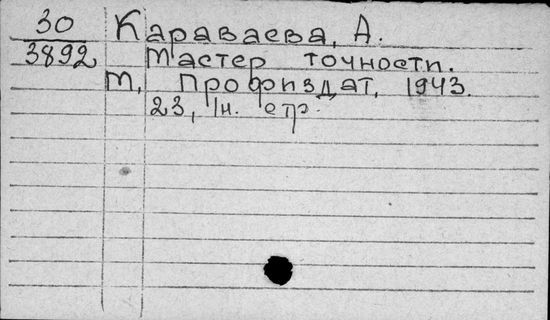 30 Караваева, А.
3892 Мастер точности.
М, Профиздат, 1943.
23, 1н. стр.